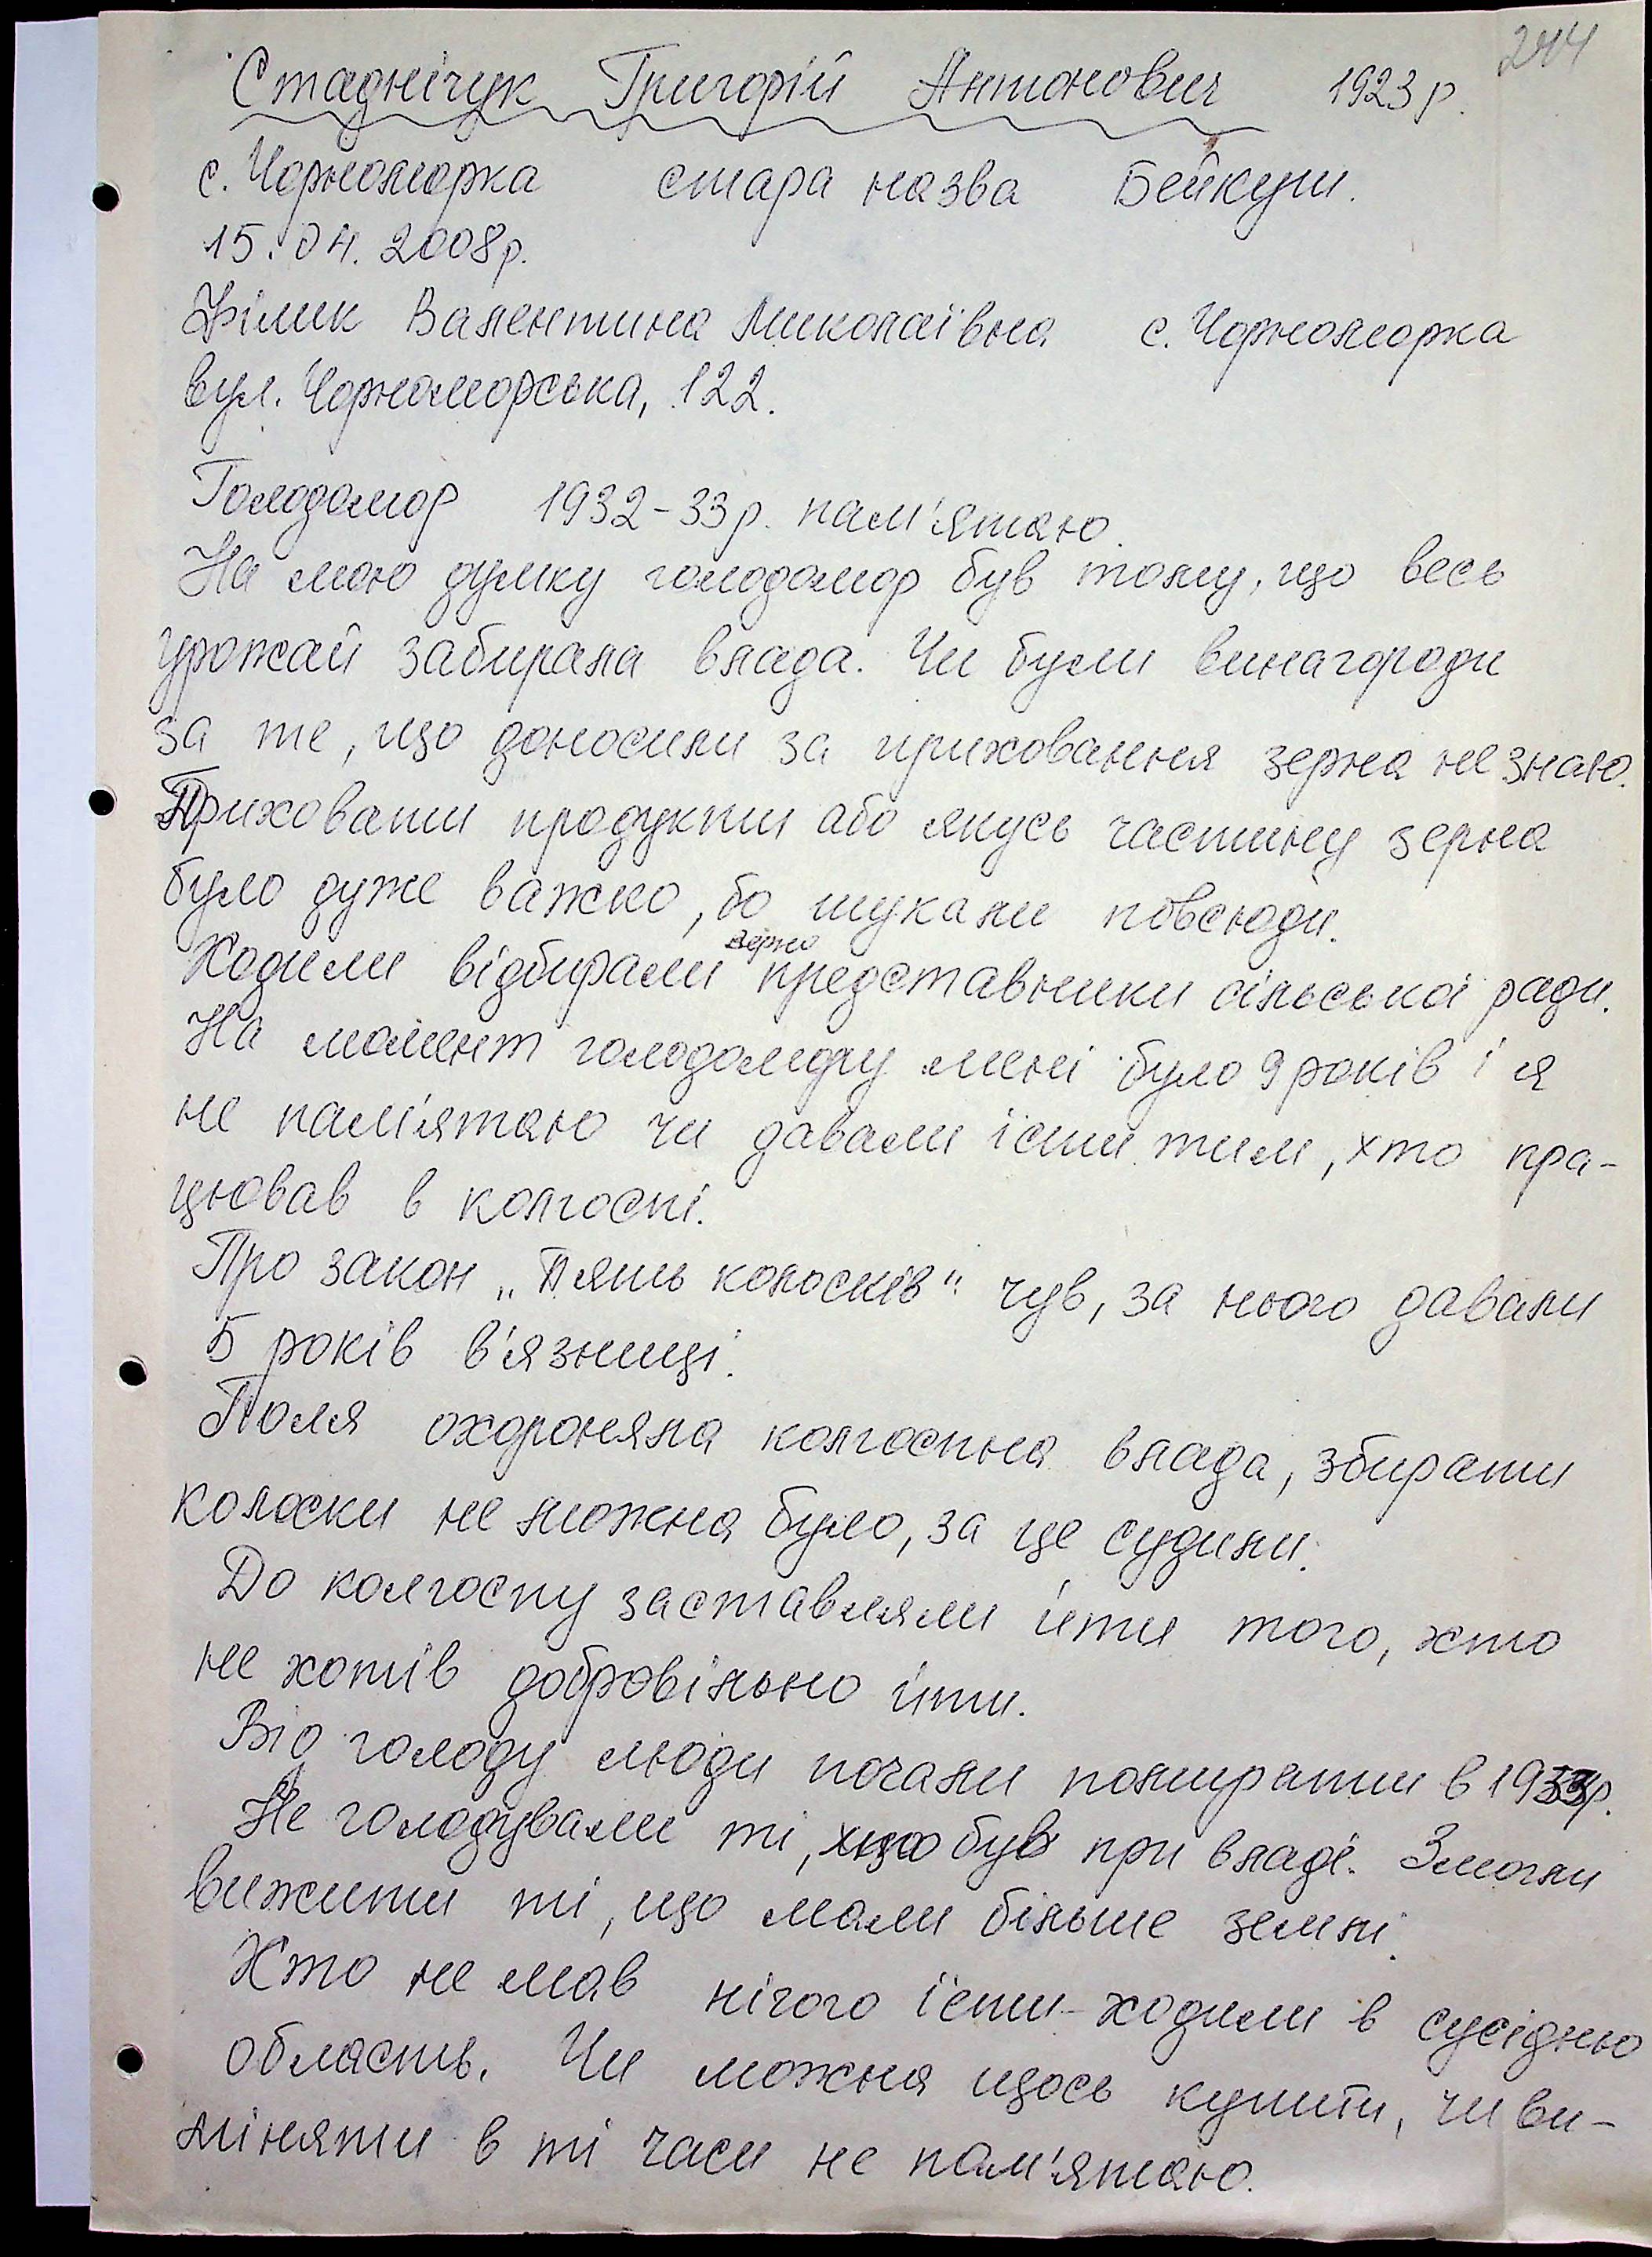 244
Стаднічук Григорій Антонович 1923 р.
с. Чорноморка стара назва Бейкуш.
15.04.2008р.
Філик Валентина Миколаївна с. Чорноморка
вул. Чорноморська, 122.
Голодомор 1932-33р. пам'ятаю.
На мою думку голодомор був тому, що весь
урожай забирала влада. Чи були винагороди
за те, що доносили за приховання зерна не знаю.
Приховати продукти або якусь частину зерна
було дуже важко, бо шукали повсюди.
Ходили відбирали зерно представники сільської ради.
На момент голодомору мені було 9 років і я
не пам'ятаю чи давали їсти тим, хто пра-
цював в колгоспі.
Про закон „П'ять колосків" чув, за нього давали
5 років в'язниці.
Поля охороняла колгоспна влада, збирати
колоски не можна було, за це судили.
До колгоспу заставляли йти того, хто
не хотів добровільно йти.
Від голоду люди почали помирати в 1933р.
Не голодували ті, хто був при владі. Змогли
вижити ті, що мали більше землі.
Хто не мав нічого їсти - ходили в сусідню
область. Чи можна щось купити, чи ви-
міняти в ті часи не пам'ятаю.